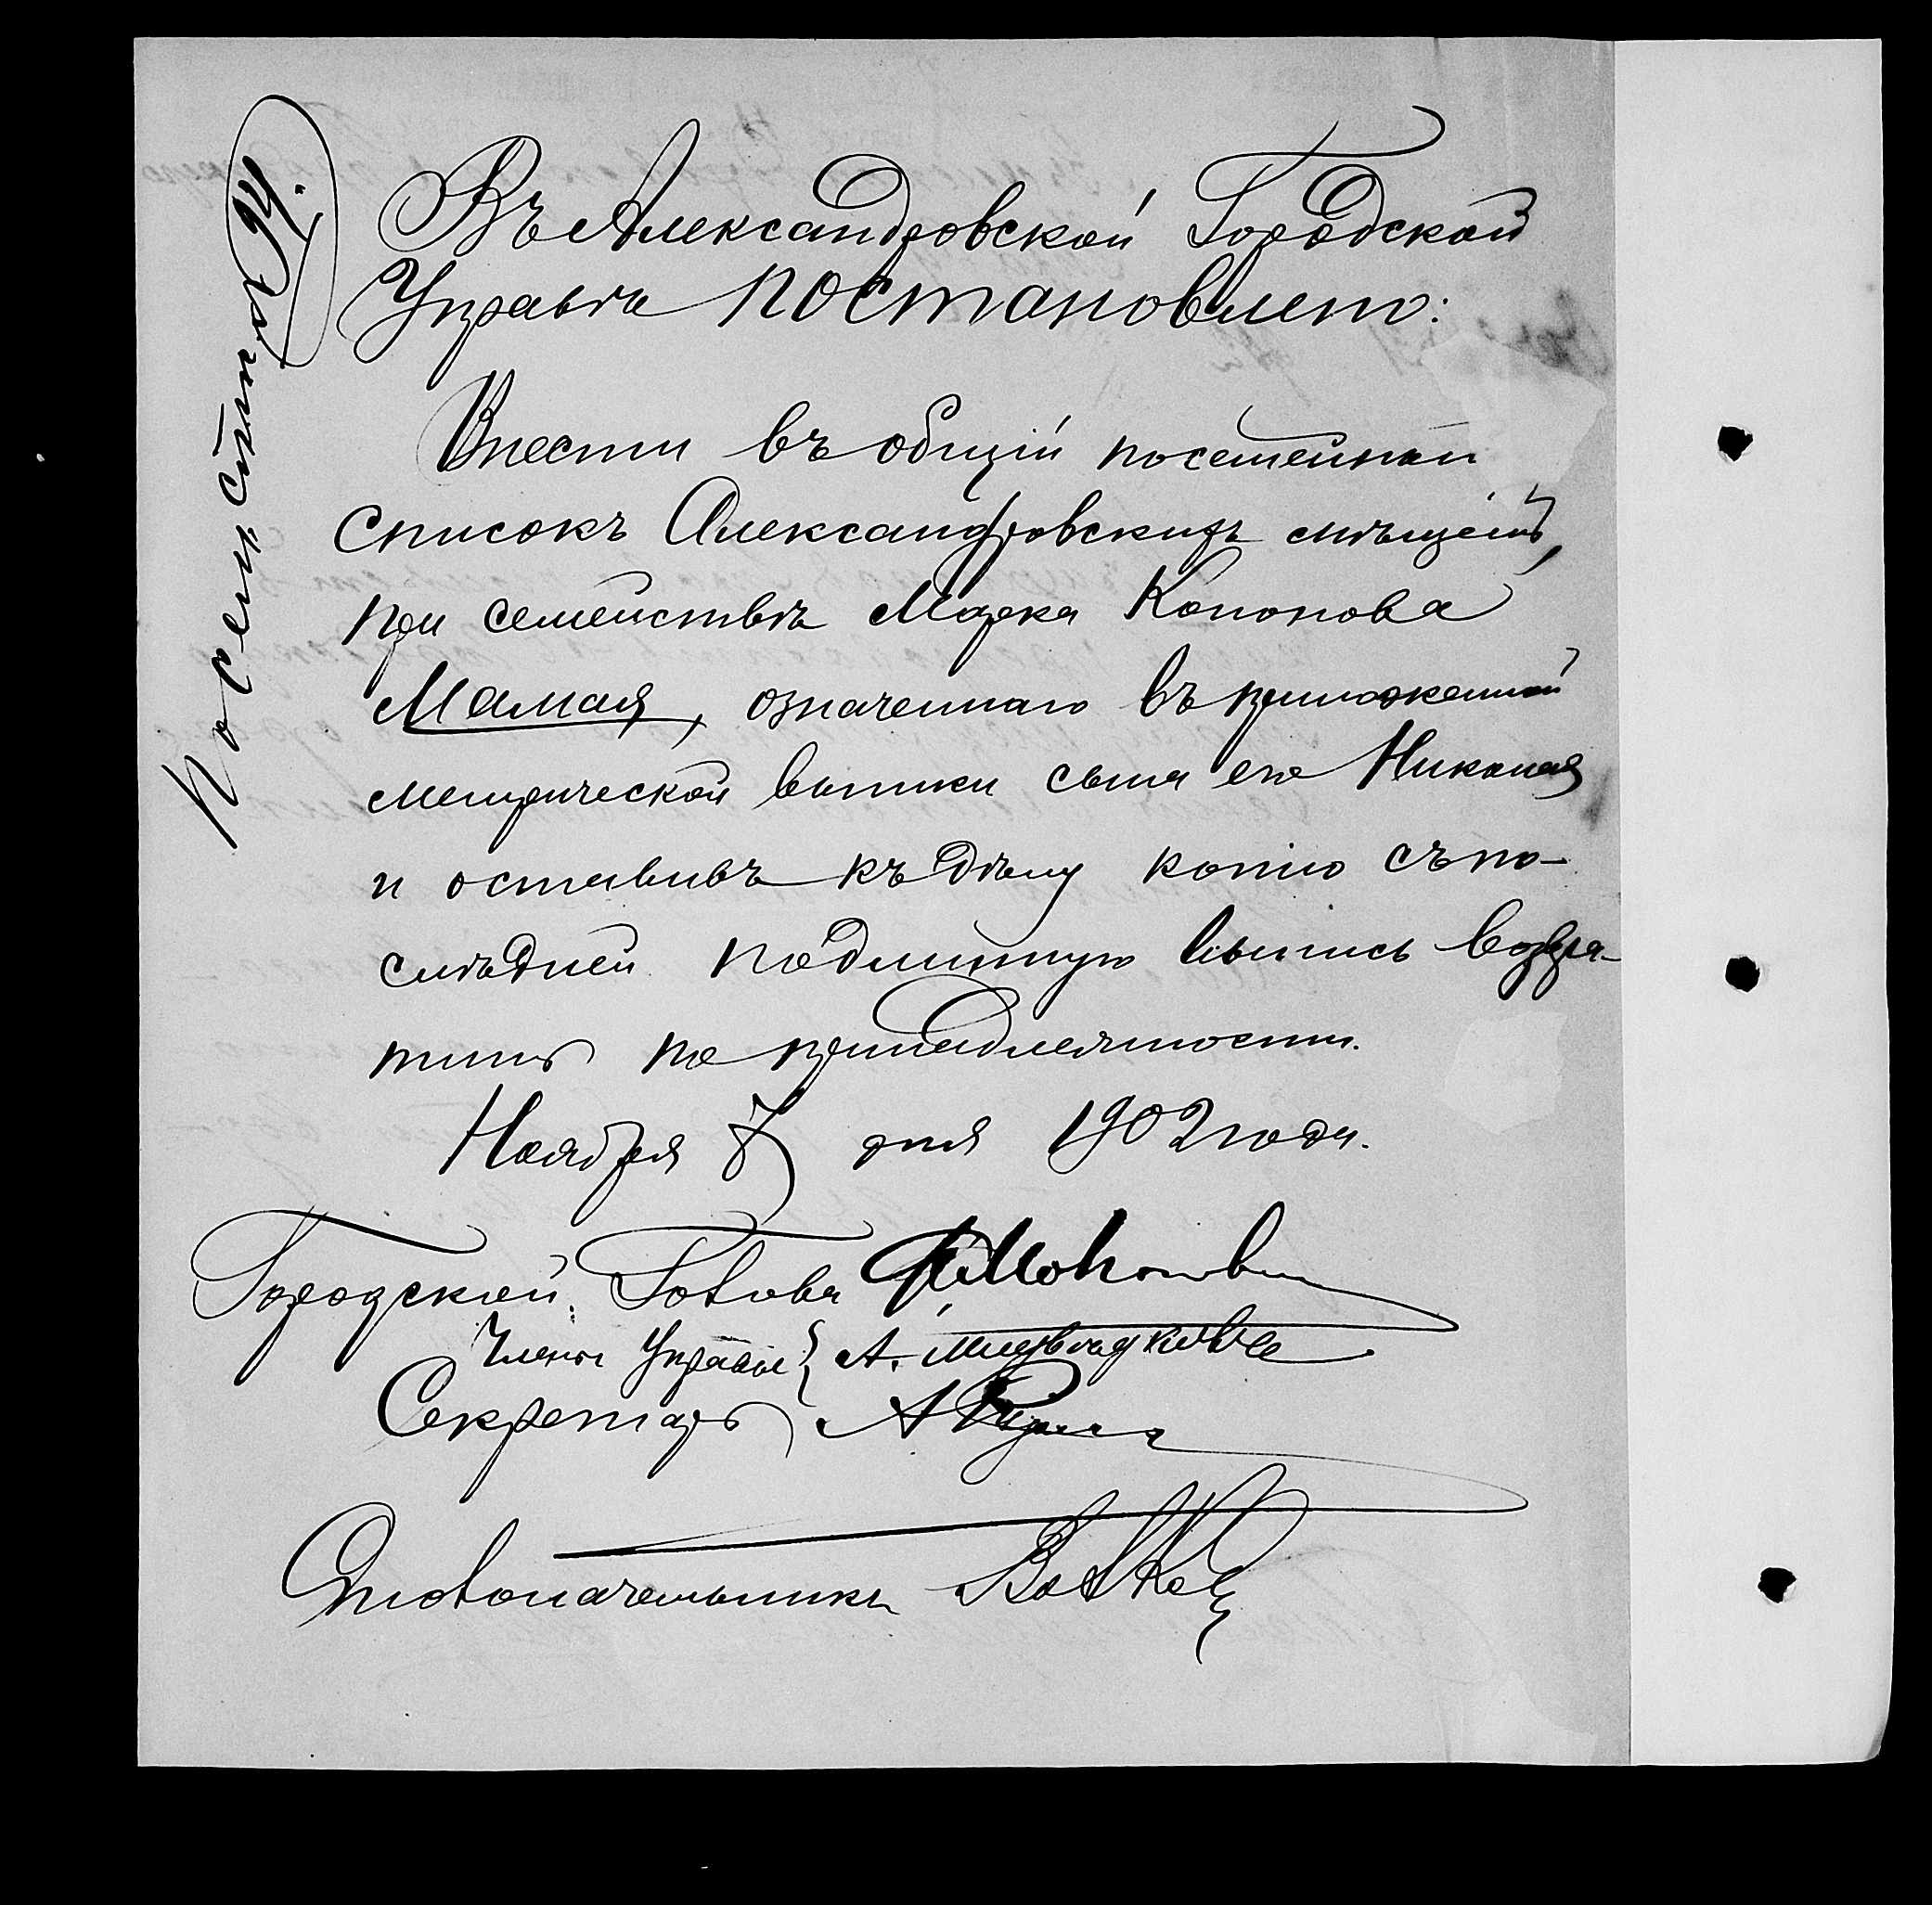 Посем. спи. №
Въ Александровской Городской
Управѣ постановлено:
Внести въ общій посемейный
списокъ Александровскихъ мѣщанъ,
при семействѣ Марка Кононова
Мамая, означеннаго въ приложенной
метрической выписи сына его Николая
и оставивъ къ дѣлу копію съ по-
слѣдней подлинную выпись возвра-
тить по принадлежности.
Ноября 7 дня 1902 года.
Городской Голова
Члены Управы: А.
Секретарь А
Столоначальникъ